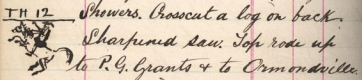 TH 12 Showers. Crosscut a log on back.
Sharpened saw. Top rode up
to P. G. Grants & to Ormondville